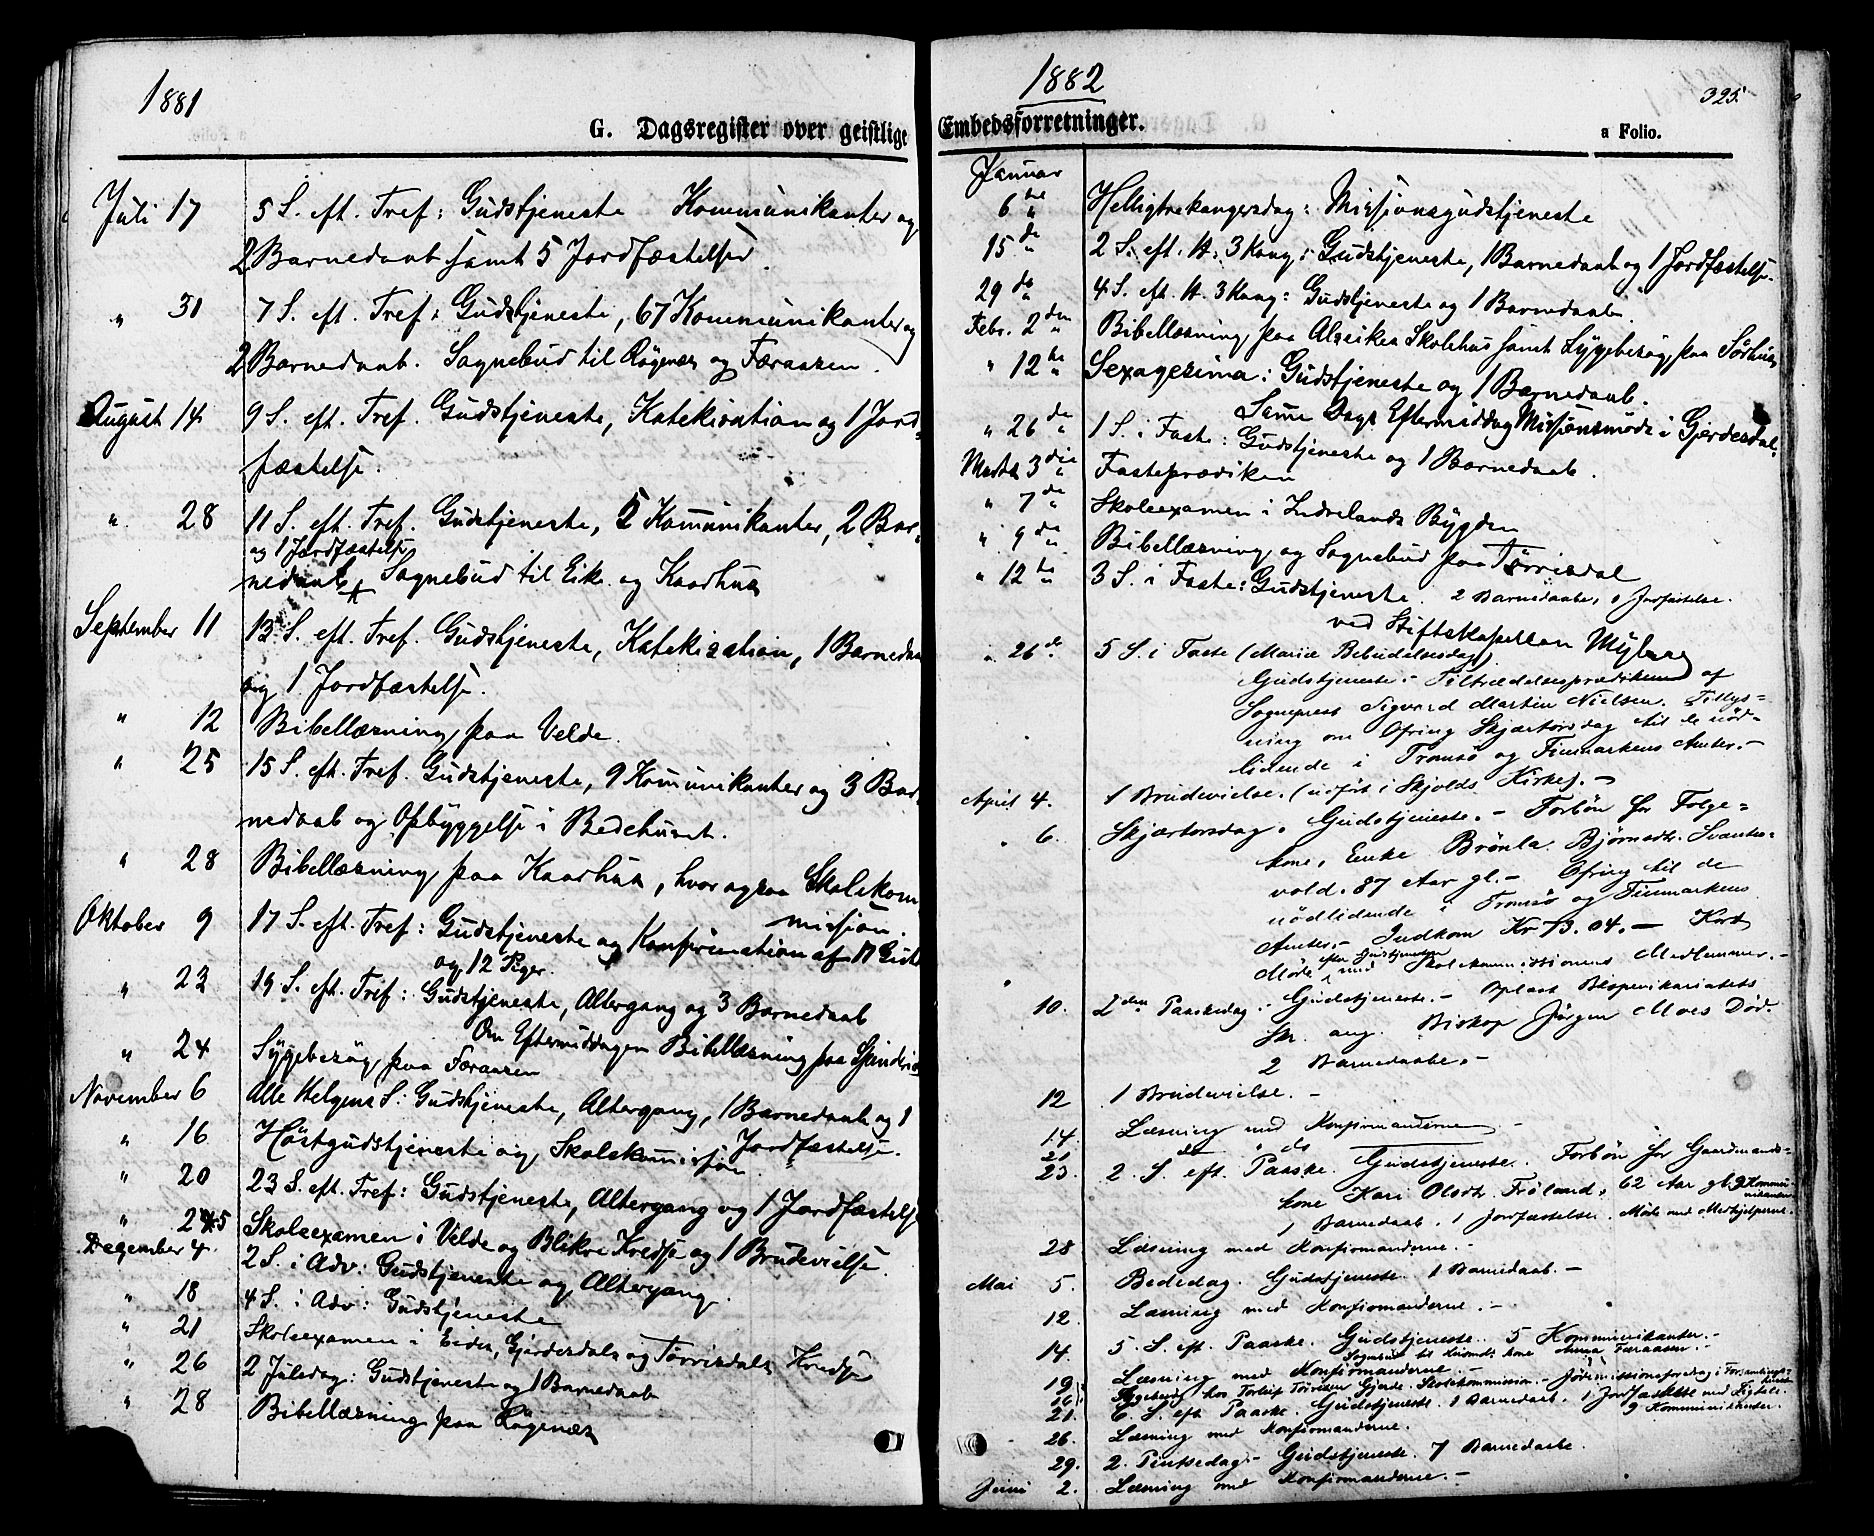 1881
G. Dagsregister over geistlige
Juli 17 5 S. eft. Tref: Gudstjeneste Kommunikanter og
2 Barnedaab samt 5 Jordfæstelser
" 31 7 S. eft. Tref: Gudstjeneste, 67 Kommunikanter og
2 Barnedaab. Sognebud til Røgenes og Færaasen.
August 14 9 S. eft. Tref. Gudstjeneste, Katekisation og 1 Jord-
fæstelse.
" 28 11 S. eft. Tref. Gudstjeneste, 5 Komunikanter, 2 Bar-
og 1 Jordfæstelse
nedaab Sognebud til Eike og Kaarhus
September 11 13 S. eft. Tref. Gudstjeneste, Katekisation, 1 Barnedaab
og 1 Jordfæstelse.
" 12 Bibellæsning paa Velde.
" 25 15 S. eft. Tref. Gudstjeneste, 9 Komunikanter og 3 Bar-
nedaab og Opbyggelse i Bedehuset.
" 28 Bibellæsning paa Kaarhus, hvor ogsaa Skolekom-
mission.
Oktober 9 17 S. eft. Tref: Gudstjeneste og Konfirmation af 17 Gutter
og 12 Piger.
" 23 19 S. eft. Tref: Gudstjeneste, Altergang og 3 Barnedaab
Om Eftermiddagen Bibellæsning paa
" 24 Sygebesøg paa Færaasen
November 6 Alle Helgens S: Gudstjeneste, Altergang, 1 Barnedaab og 1
Jordfæstelse.
" 16 Høstgudstjeneste og Skolekomission
" 20 23 S. eft. Tref: Gudstjeneste, Altergang og 1 Jordfæstelse
" 25 Skoleexamen i Velde og Blikra Kredse og 1 Brudevielse.
December 4 2 S. i Adv: Gudstjeneste og Altergang.
" 18 4 S. i Adv: Gudstjeneste
" 21 Skoleexamen i Eides, Gjerdesdals og Tørrisdals Kredse
" 26 2 Juledag: Gudstjeneste og 1 Barnedaab
" 28 Bibellæsning paa Røgenes
1882
325
Embedsforretninger.
a Folio.
Januar
6te Helligtrekongersdag: Missionsgudstjeneste
15de 2 S. eft. H. 3 Kong: Gudstjeneste, 1 Barnedaab og 1 Jordfæstelse.
29de 4 S. eft. H. 3 Kong: Gudstjeneste og 1 Barnedaab.
Febr. 2den Bibellæsning paa Alseikes Skolehus samt Sygebesøg paa Sørhus
" 12te Sexagesima: Gudstjeneste og 1 Barnedaab.
Samme Dags Eftermiddag Missionsmøde i Gjerdesdal.
" 26de 1 S. i Faste: Gudstjeneste og 1 Barnedaab.
Marts 3die Fasteprædiken
" 7de Skoleexamen i Indrelands Bygden
" 9de Bibellæsning og Sognebud paa Tørrisdal
" 12te 3 S. i Faste: Gudstjeneste. 2 Barnedaab, 1 Jordfæstelse.
ved Stiftskapellan
" 26de 5 S. i Faste (Mariæ Bebudelsesdag)
Gudstjeneste. - Tiltrædelsesprædiken af
Sogneprest Sigvard Martin Nielsen. Tillys-
ning om Ofring Skjærtorsdag til de nød-
lidende i Tromsø og Finmarkens Amter. -
April 4. 1 Brudevielse. (udført i Skjolds Kirke). -
" 6. Skjærtorsdag. Gudstjeneste. - Forbøn for Følge-
kone, Enke Brønla Bjørnsdtr. Svendse-
vold. 87 Aar gl. - Ofring til de
nødlidende i Tromsø og Finmarkens
Amter. - Indkom Kr 13.04. - Kort
Møde efter Gudstjenesten med Skolekommissionens Medlemmer. -
" 10. 2den Paaskedag. Gudstjeneste. - Oplæst Bispevikariatets
Skr. ang. Biskop Jørgen Moes Død.
2 Barnedaabe. -
12 1 Brudevielse. -
14. Læsning med Konfirmanderne -
21 do do
23. 2. S. eft. Paaske. Gudstjeneste. Forbøn for Gaardmands-
kone Kari Olsdtr. Frøland, 62 Aar gl. 9 Kommu-
nikanter
1 Barnedaab. 1 Jordfæstelse. Møde med Medhjelperne.
28 Læsning med Konfirmanderne. -
Mai 5. Bededag. Gudstjeneste. 1 Barnedaab. -
12. Læsning med Konfirmanderne. -
14. 5. S. eft. Paaske. Gudstjeneste. 5 Kommunikanter. -
Sognebud til kone Anna Færaasen. -
19 Læsning med Konfirmanderne. -
16. Sygebesøg hos Torleif Tørresen Gjerde. Skolekommission. - Jødemissionsforedrag i
21. 6. S. eft. Paaske. Gudstjeneste. 1 Barnedaab. 1 Jordfæstelse med Ligtale.
9 Kommunikanter.
26. Læsning med Konfirmanderne.
29. 2. Pintsedag. - Gudstjeneste. 7 Barnedaabe.
Juni 2. Læsning med Konfirmanderne. -